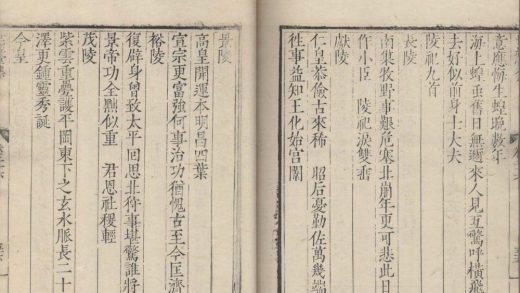 海上蝗垂舊日無邇來人見互驚呼橫飛
去好似前身士大夫
陵祀九首
長陵
南巢牧野事艱危塞北崩年更可悲此日
作小臣 陵祀淚雙垂
獻陵
仁皇恭儉古來稀 昭后憂勤佐萬幾端
徃事益知王化始宮闈
景陵
高皇開運本明昌四葉
宣宗更富強何事治功猶愧古至今匡濟
裕陵
復辟身曾致太平回思北狩事堪驚誰將
景帝功全黜似重 君恩社稷輕
茂陵
紫雲重疊護平岡東下之玄水脈長二十
澤更鍾靈秀誕
今皇